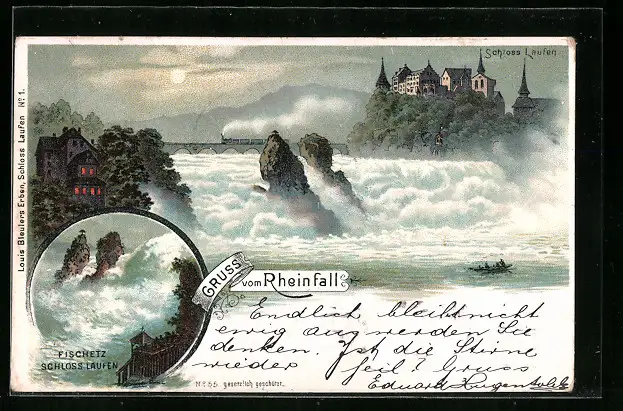 Schloss Laufen
Louis Bleulers Erben, Schloss Laufen Nº 1.
GRUSS vom Rheinfall
FISCHETZ
SCHLOSS LAUFEN
Nº 55. gesetzlich geschützt.
Endlich bleibt nicht
ewig aus werden Sie
denken. Ist die Stirne
wieder heil? Gruss
Eduard